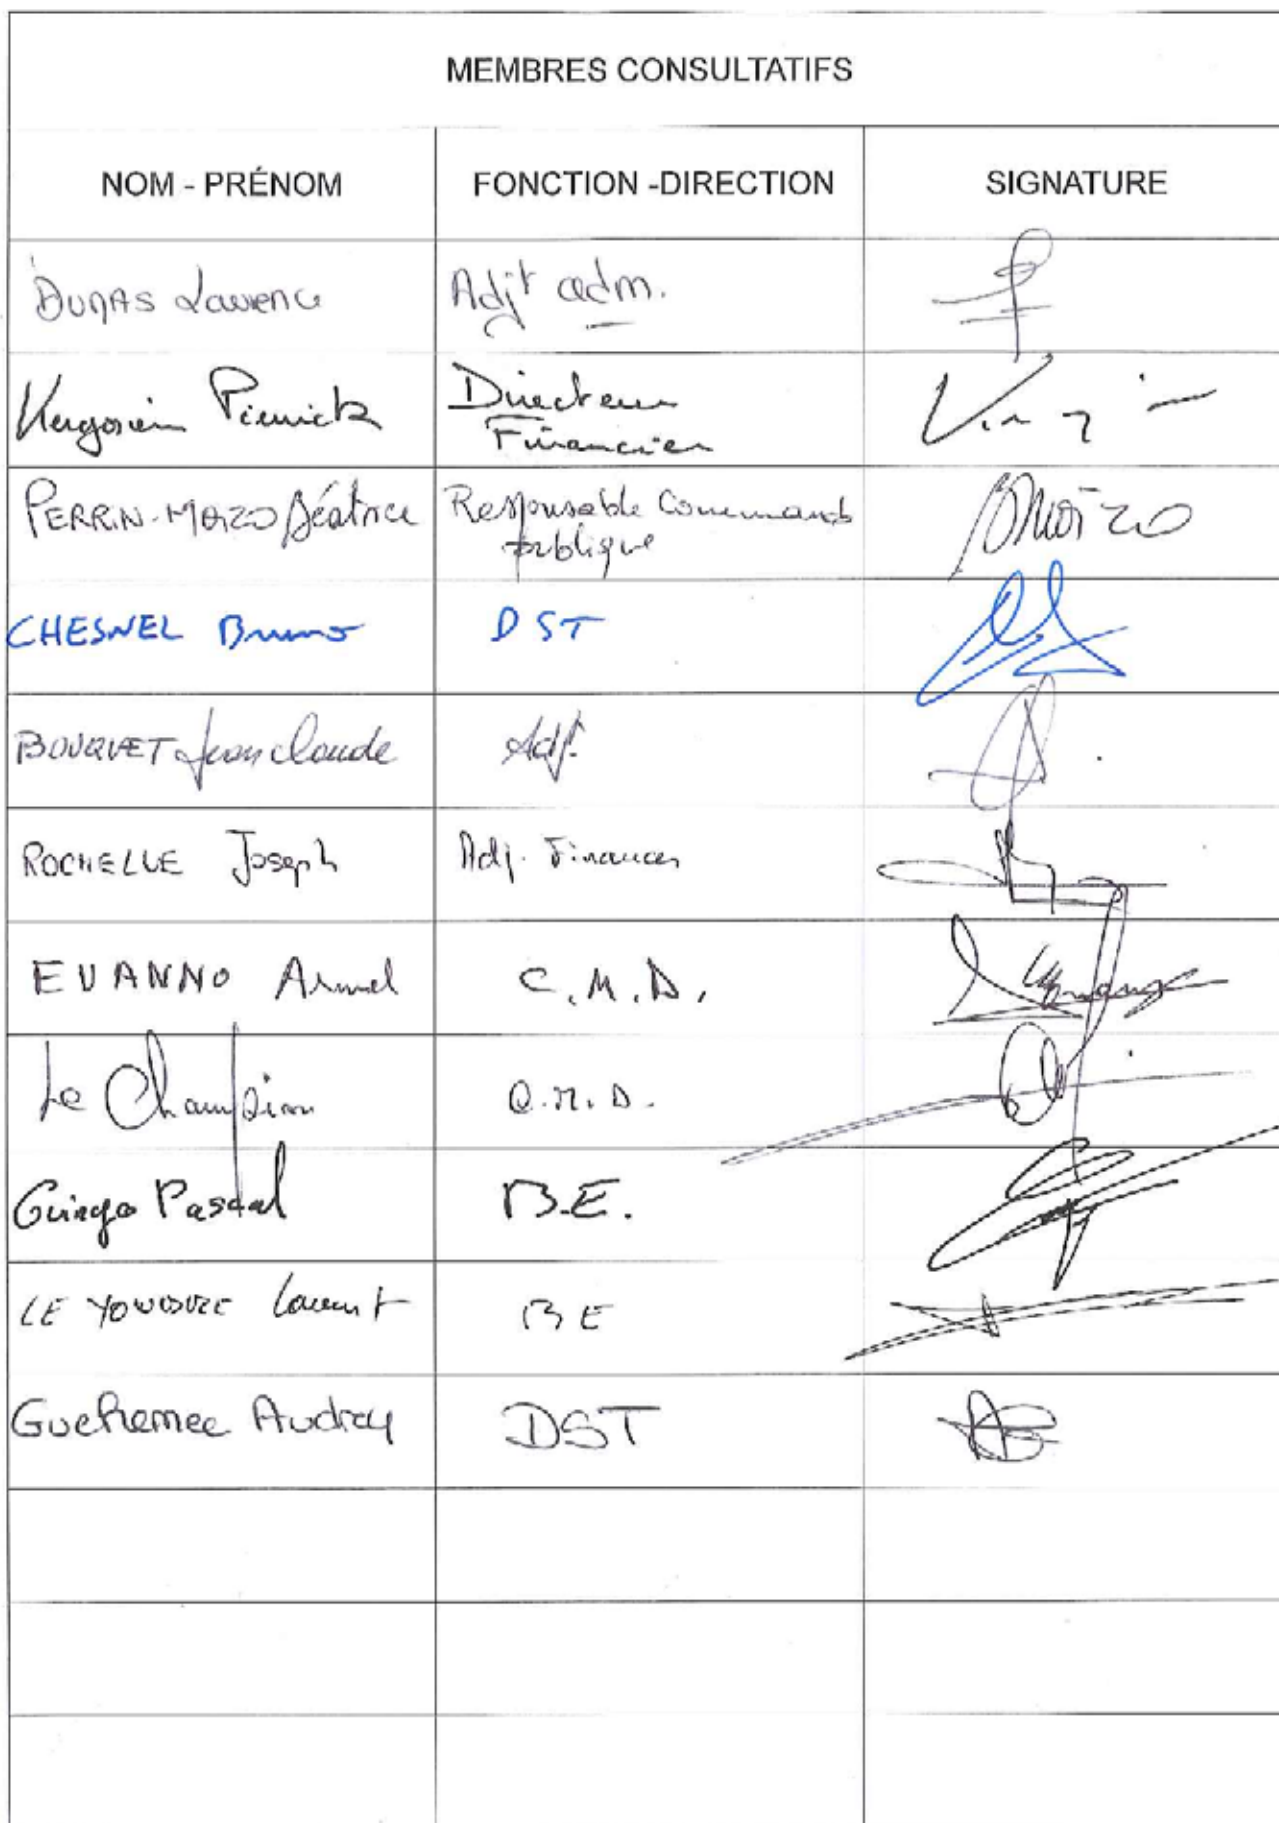 MEMBRES CONSULTATIFS
NOM - PRÉNOM FONCTION -DIRECTION SIGNATURE
DUMAS Laurence Adjt adm.
Pierrick Directeur
Financier
PERRIN-MORZO Béatrice Responsable Commande
publique
CHESNEL Bruno DST
BOUQUET Jean Claude Adjt
ROCHELLE Joseph Adj. Finances
EVANNO Armel C.M.D.
Le Champion C.M.D.
Guingo Pascal B.E.
LE Laurent BE
Guehennec Audrey DST